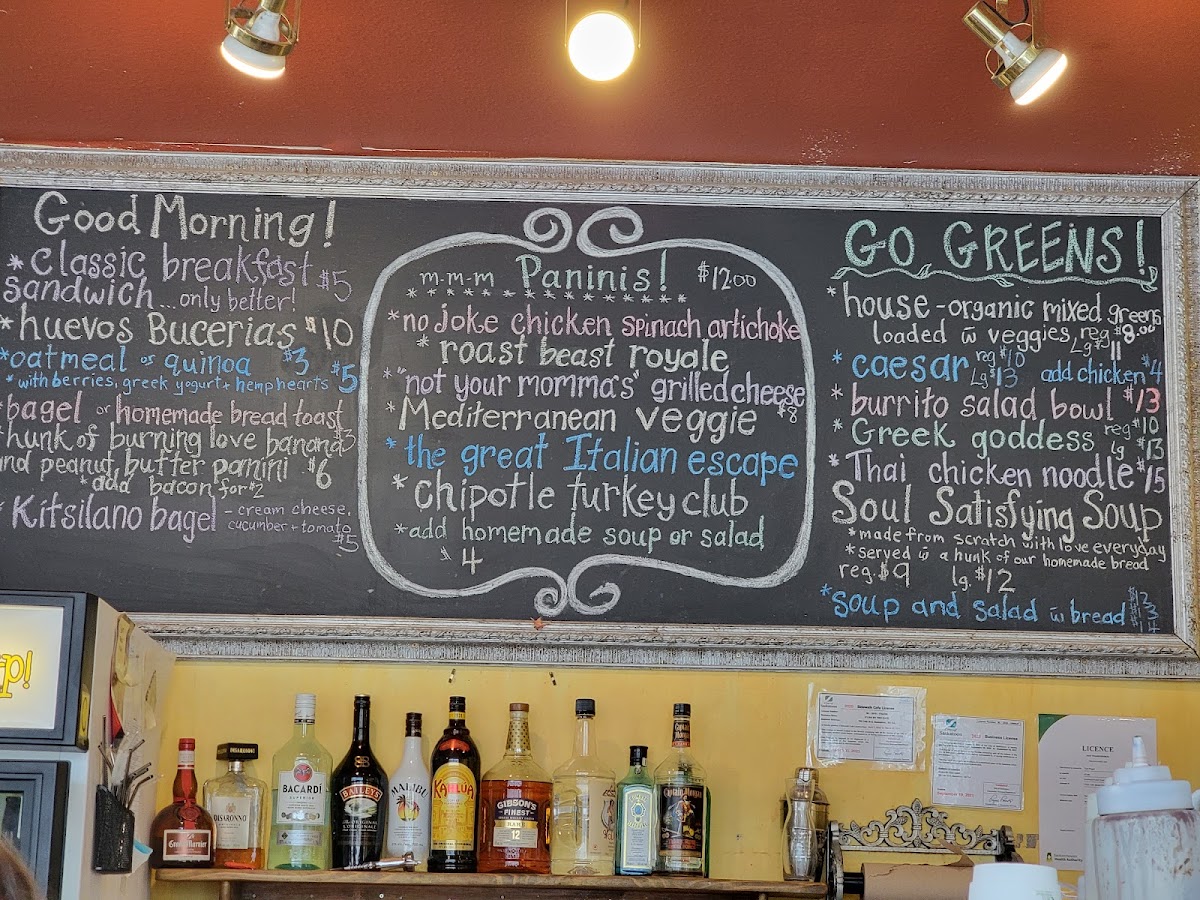 Good Morning!
*classic breakfast $5
sandwich...only better!
*huevos Bucerias $10
*oatmeal or quinoa $3
*with berries, greek yogurt + hemp hearts $5
*bagel or homemade bread toast $3
hunk of burning love banana
and peanut butter panini $6
*add bacon for $2
*Kitsilano bagel - cream cheese,
cucumber + tomato $5
m-m-m Paninis! $12.00
*no joke chicken spinach artichoke
*roast beast royale
*"not your momma's" grilled cheese $8
*Mediterranean veggie
*the great Italian escape
*chipotle turkey club
*add homemade soup or salad
$4
GO GREENS!
*house - organic mixed greens
loaded w̄ veggies reg $8.00
Lg $11
*caesar reg $10 Lg $13 add chicken $4
*burrito salad bowl $13
*Greek goddess reg $10 lg $13
*Thai chicken noodle $15
Soul Satisfying Soup
*made from scratch with love everyday
*served w̄ a hunk of our homemade bread
reg. $9 lg. $12
*soup and salad w̄ bread
Grand Marnier
DISARONNO
BACARDÍ
SUPERIOR
BAILEYS
MALIBU
KAHLÚA
GIBSON'S
FINEST
RARE
12
Captain Morgan
Saskatoon
Sidewalk Cafe License
Saskatoon
Business License
LICENCE
Health Authority